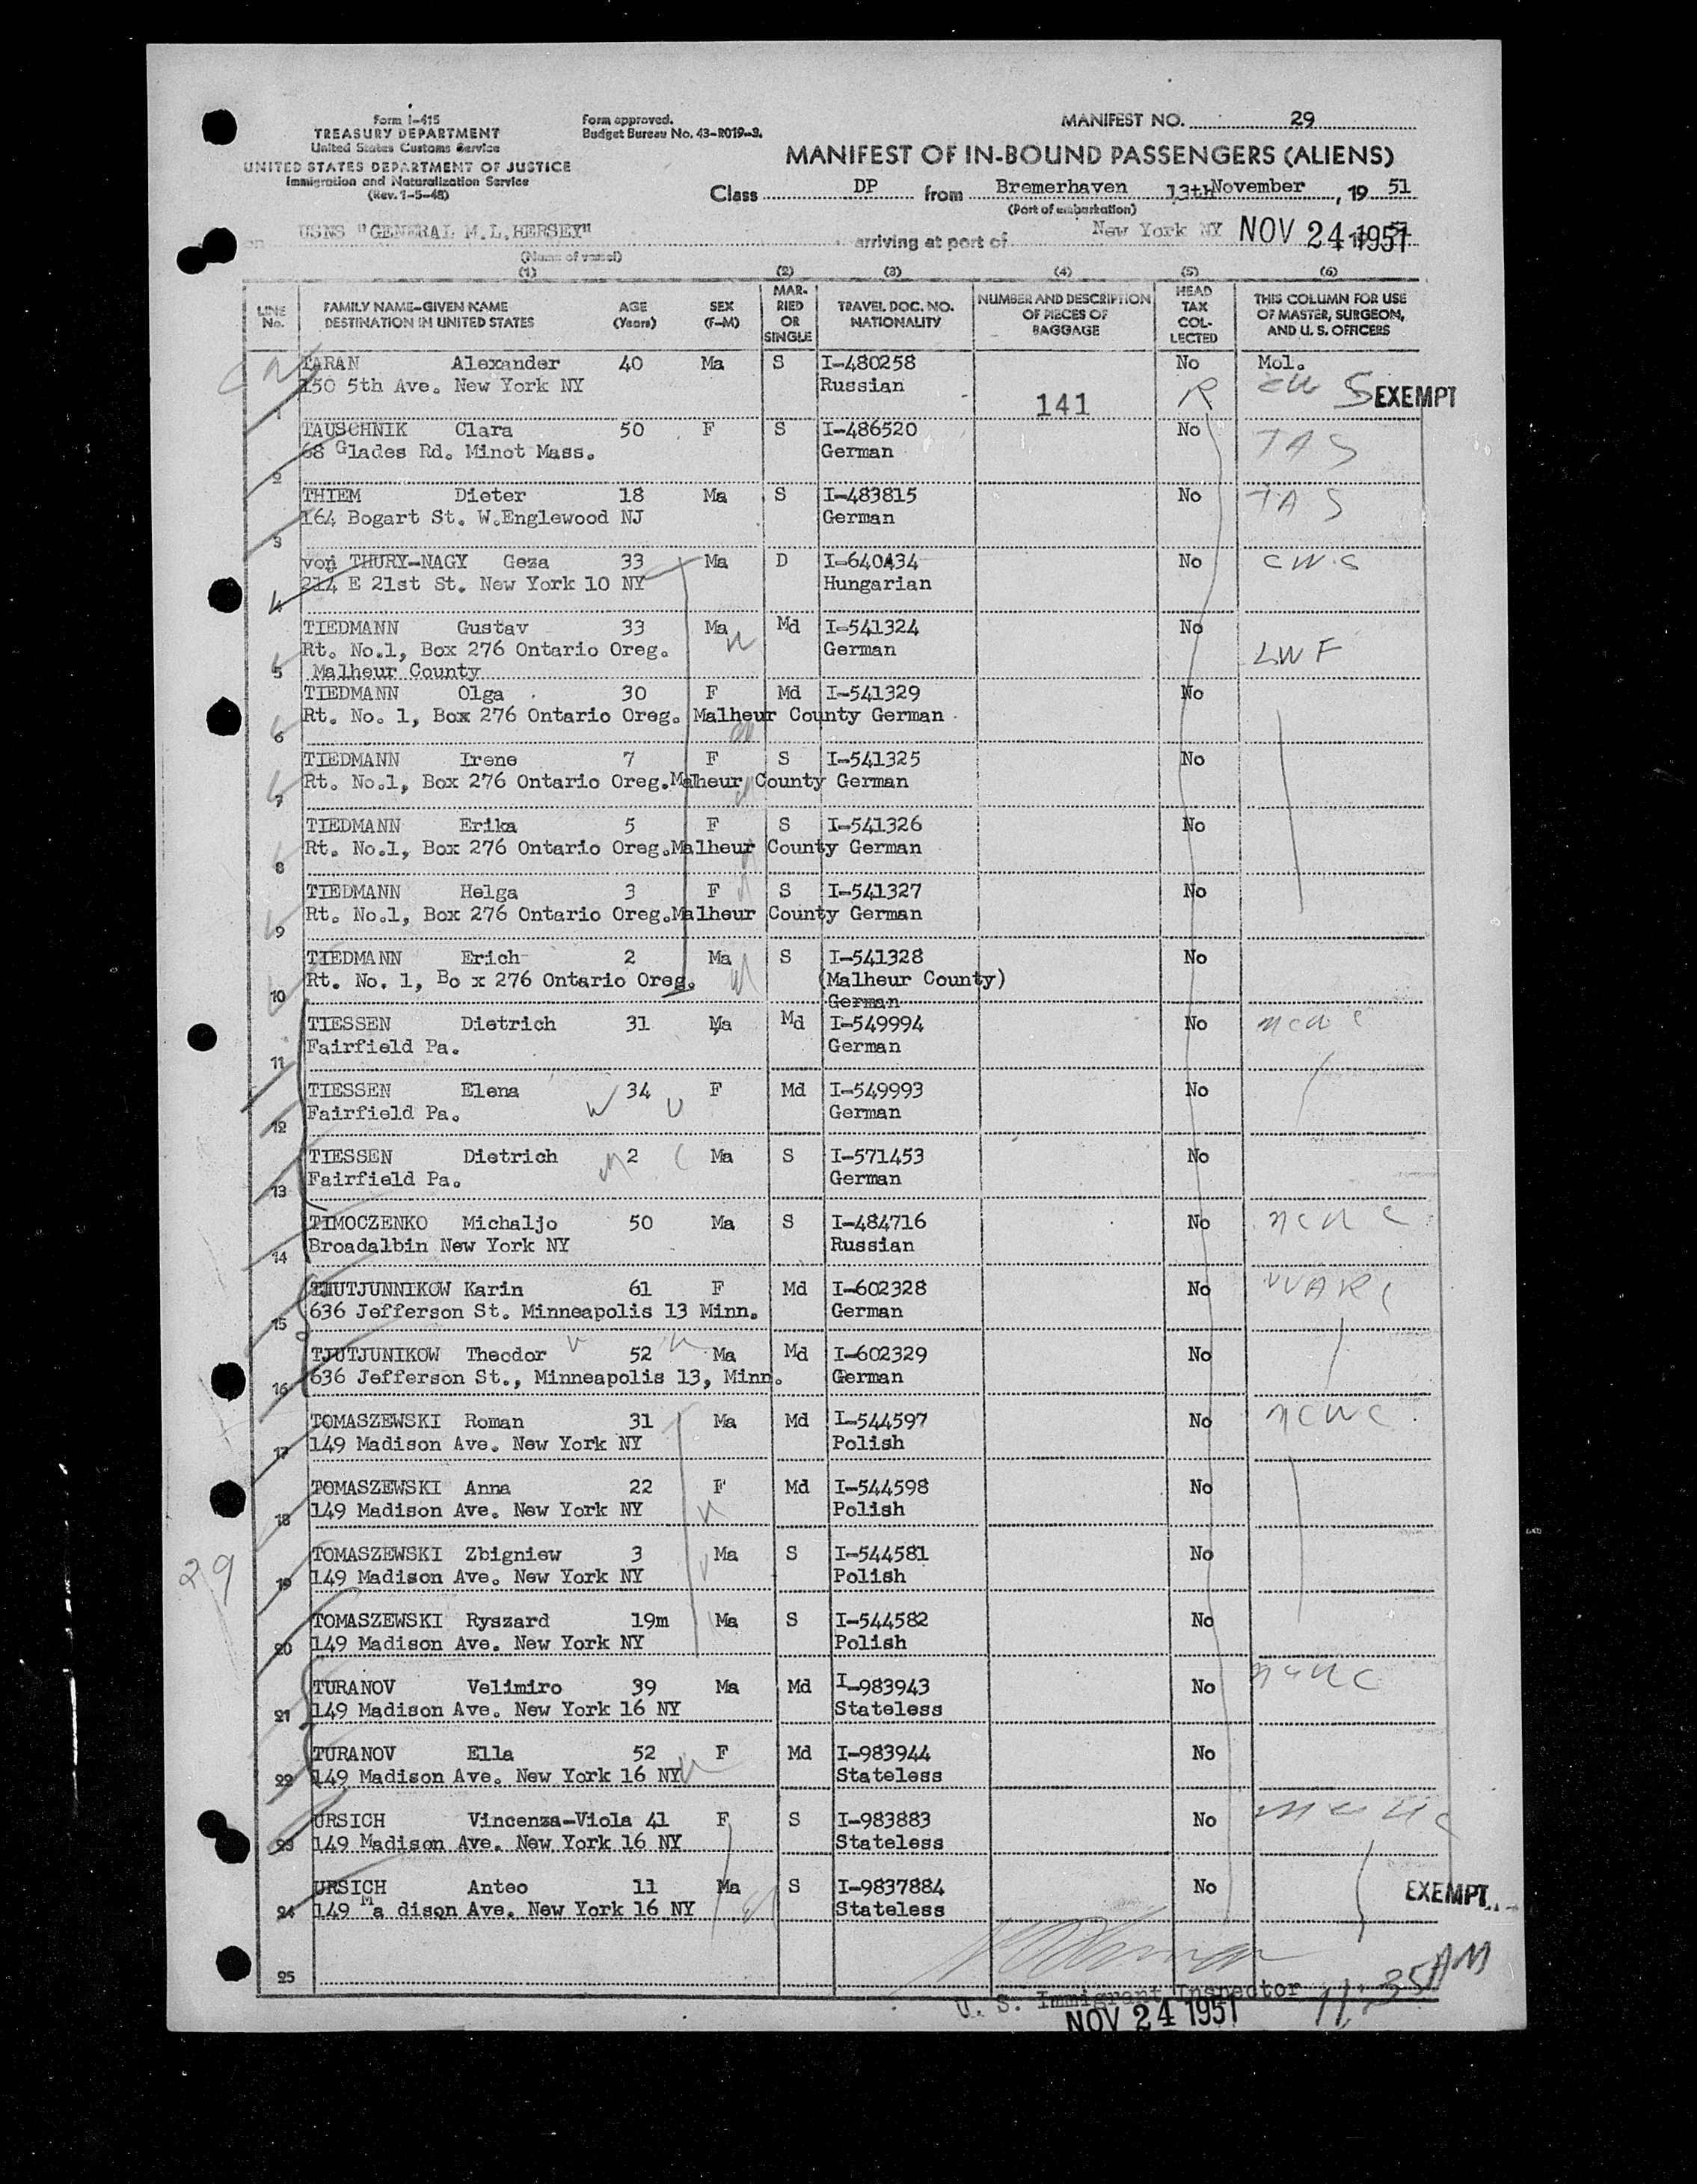 Form I-415
TREASURY DEPARTMENT
United States Customs Service
UNITED STATES DEPARTMENT OF JUSTICE
Immigration and Naturalization Service
(Rev. 1-5-48)
Form approved.
Budget Bureau No. 43-R019-3.
MANIFEST NO. 29
MANIFEST OF IN-BOUND PASSENGERS (ALIENS)
Class DP from Bremerhaven 13th November, 19 51
(Port of embarkation)
on USNS "GENERAL M.L.HERSEY" arriving at port of New York NY NOV 24 1951
(Name of vessel)
(1) (2) (3) (4) (5) (6)
LINE No. FAMILY NAME-GIVEN NAME DESTINATION IN UNITED STATES AGE (Years) SEX (F-M) MARRIED OR SINGLE TRAVEL DOC. NO. NATIONALITY NUMBER AND DESCRIPTION OF PIECES OF BAGGAGE HEAD TAX COLLECTED THIS COLUMN FOR USE OF MASTER, SURGEON, AND U. S. OFFICERS
TARAN Alexander 40 Ma S I-480258 No Mol.
1 150 5th Ave. New York NY Russian 141 R EXEMPT
TAUSCHNIK Clara 50 F S I-486520 No TAS
2 68 Glades Rd. Minot Mass. German
THIEM Dieter 18 Ma S I-483815 No TAS
3 164 Bogart St. W.Englewood NJ German
von THURY-NAGY Geza 33 Ma D I-640434 No CWS
4 214 E 21st St. New York 10 NY Hungarian
TIEDMANN Gustav 33 Ma Md I-541324 No
Rt. No.1, Box 276 Ontario Oreg. German LWF
5 Malheur County
TIEDMANN Olga 30 F Md I-541329 No
6 Rt. No. 1, Box 276 Ontario Oreg. Malheur County German
TIEDMANN Irene 7 F S I-541325 No
7 Rt. No.1, Box 276 Ontario Oreg.Malheur County German
TIEDMANN Erika 5 F S I-541326 No
8 Rt. No.1, Box 276 Ontario Oreg.Malheur County German
TIEDMANN Helga 3 F S I-541327 No
9 Rt. No.1, Box 276 Ontario Oreg.Malheur County German
TIEDMANN Erich 2 Ma S I-541328 No
10 Rt. No. 1, Bo x 276 Ontario Oreg. (Malheur County)
German
TIESSEN Dietrich 31 Ma Md I-549994 No ncwc
11 Fairfield Pa. German
TIESSEN Elena 34 F Md I-549993 No
12 Fairfield Pa. German
TIESSEN Dietrich 2 Ma S I-571453 No
13 Fairfield Pa. German
TIMOCZENKO Michaljo 50 Ma S I-484716 No ncwc
14 Broadalbin New York NY Russian
TJUTJUNNIKOW Karin 61 F Md I-602328 No
15 636 Jefferson St. Minneapolis 13 Minn. German
TJUTJUNIKOW Theodor 52 Ma Md I-602329 No
16 636 Jefferson St., Minneapolis 13, Minn. German
TOMASZEWSKI Roman 31 Ma Md I-544597 No ncwc
17 149 Madison Ave. New York NY Polish
TOMASZEWSKI Anna 22 F Md I-544598 No
18 149 Madison Ave. New York NY Polish
TOMASZEWSKI Zbigniew 3 Ma S I-544581 No
29 19 149 Madison Ave. New York NY Polish
TOMASZEWSKI Ryszard 19m Ma S I-544582 No
20 149 Madison Ave. New York NY Polish
TURANOV Velimiro 39 Ma Md I-983943 No ncwc
21 149 Madison Ave. New York 16 NY Stateless
TURANOV Ella 52 F Md I-983944 No
22 149 Madison Ave. New York 16 NY Stateless
URSICH Vincenza-Viola 41 F S I-983883 No ncwc
23 149 Madison Ave. New York 16 NY Stateless
URSICH Anteo 11 Ma S I-9837884 No EXEMPT
24 149 Ma dison Ave. New York 16 NY Stateless
25
U. S. Immigrant Inspector 11:35 AM
NOV 24 1951